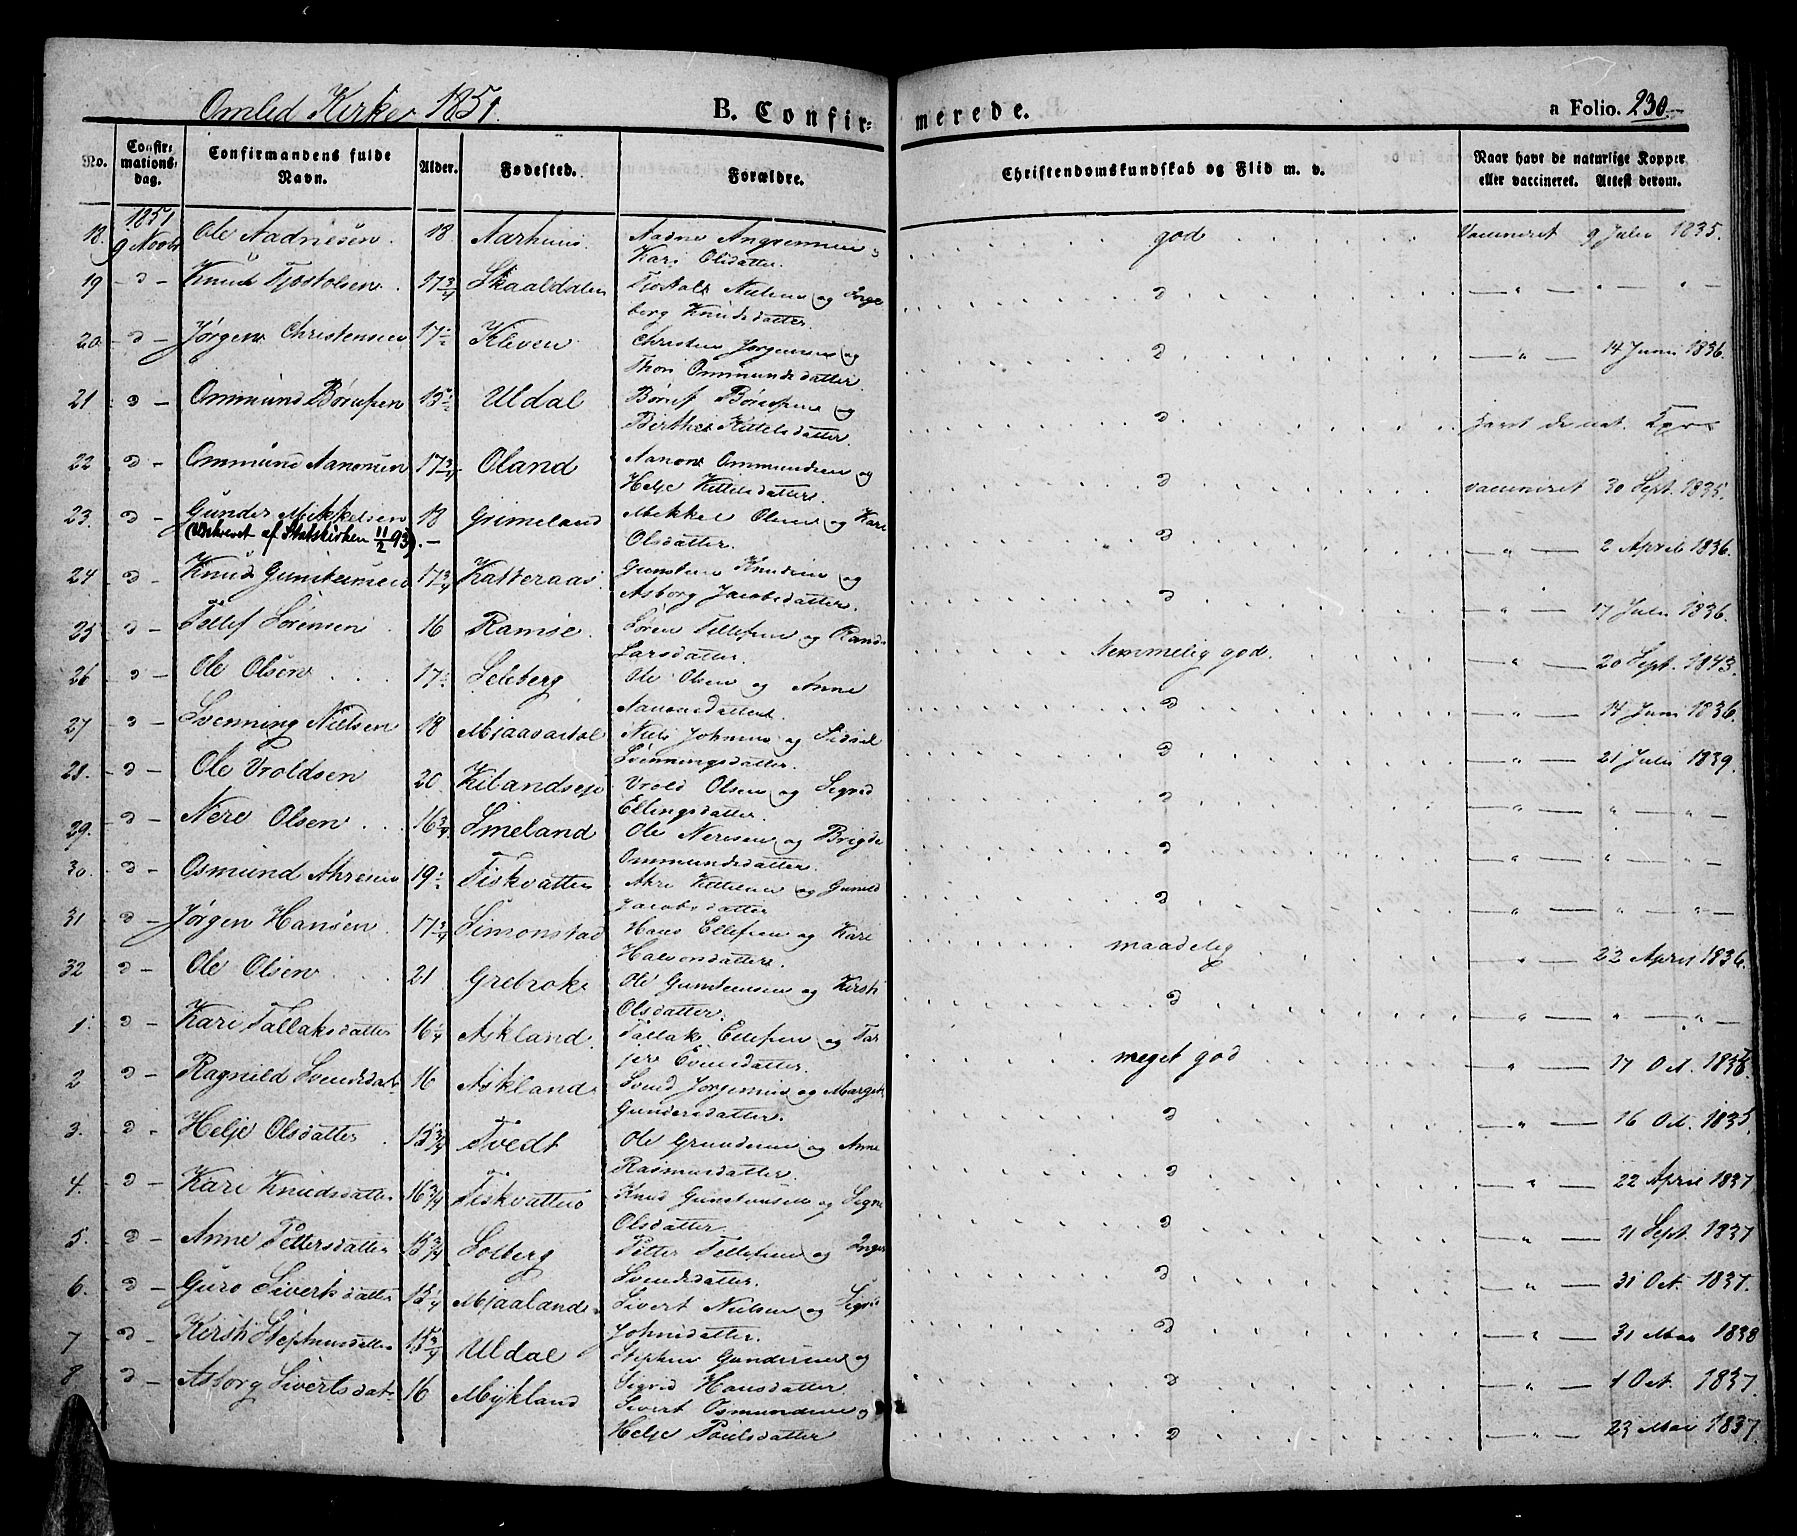 Omlid Kirke 1851.
B. Confirmerede.
a Folio. 230
No.
Confirmationsdag.
Confirmandens fulde Navn.
Alder.
Fødested.
Forældre.
Christendomskundskab og Flid m. v.
Naar havt de naturlige Kopper eller vaccineret. Attest derom.
18. 1851 9 Novbr Ole Aadnesen. 18 Aarhuus Aadne Kari Olsdatter. god Vaccineret 9 Julii 1835.
19 d — Knud Tjøstolsen 17 3/4 Skaaldalen Tjøstolv Nielsen og Ingeberg Knudsdatter. d — " — " — " —
20. d — Jørgen Christensen 17 Kleven Christen Jørgensen og Thon Ommundsdatter d — " — 14 Juni 1836.
21 d — Ommund Børufsen 15 Uldal Børuf Børufsen og Birthe Kittelsdatter. d havt de nat.
22 d — Ommund Aanonsen 17 3/4 Oland Aanon Ommundsen og Helje Kittilsdatter. d vaccineret 30 Sept. 1835.
23. d — Gunder Mikkelsen 18 Grimeland Mikkel Olsen og Kari Olsdatter. d — " — 2 April 1836.
(Udtraadt af Statskirken 11/2 93).
24 d — Knud Gunstensen 17 3/4 Katteraas Gunsten Knudsen og Asborg Jacobsdatter. d — " — 17 Julii 1836.
25 d — Tellef Sørensen 16 Ramse. Søren Tellefsen og Randi Larsdatter. Nemmelig god. — " — 20 Sept. 1843.
26 d — Ole Olsen 17 Seleberg Ole Olsen og Anne Aanonsdatter. d — " — 14 Juni 1836.
27 d — Svenning Nielsen 18 Mjaavasdal Niels Johnsen og Sidsel Svenningsdatter. d — " — 21 Julii 1839.
28. d — Ole Vroldsen 20 Kilandseje Vrold Olsen og Sigrid Ellingsdatter. d — " — " — " —
29. d — Nere Olsen 16 3/4 Smeland Ole Neresen og Brigde Ommundsdatter. d — " — " — " —
30. d — Osmund Ahresen 19 Fiskvatten Ahre Kittilsen og Gunild Jacobsdatter d — " — " — " —
31 d — Jørgen Hansen 17 3/4 Simonstad Hans Ellefsen og Kari Halvorsdatter. maadelig — " — 22 April 1836.
32 d — Ole Olsen 21 Grebrok Ole Gunstensen og Kirsti Olsdatter. d — " — " — " —
1. d — Kari Tallaksdatter 16 1/4 Askland. Tallak Ellefsen og Tarjer Evensdatter. meget god — " — 17 Oct.
2 d — Ragnild Svendsdat. 16 Askland Svend Jørgensen og Marget Gundersdatter. d — " — 16 Oct. 1835.
3. d — Helje Olsdatter 15 3/4 Tvedt Ole Gundersen og Anne Rasmusdatter. d — " — 22 April 1837
4. d — Kari Knudsdatter 16 3/4 Fiskvatten Knud Gunstensen og Signe Olsdatter d — " — 11 Sept. 1837
5. d — Anne Pettersdatter 15 3/4 Solberg Petter Tellefsen og Inger Svendsdatter. d — " — 31 Oct. 1837.
6. d — Guro Sivertsdatter 15 1/4 Mjaaland Sivert Nielsen og Sigri Johnsdatter. d — " — 31 Mai 1838
7 d — Kirsti Stephensdatter 15 3/4 Uldal Stephen Gundersen og Sigrid Hansdatter d — " — 1 Oct. 1837.
8 d — Asborg Sivertsdat. 16 Mykland Sivert Osmundsen og Helje Poulsdatter d — " — 23 Mai 1837.